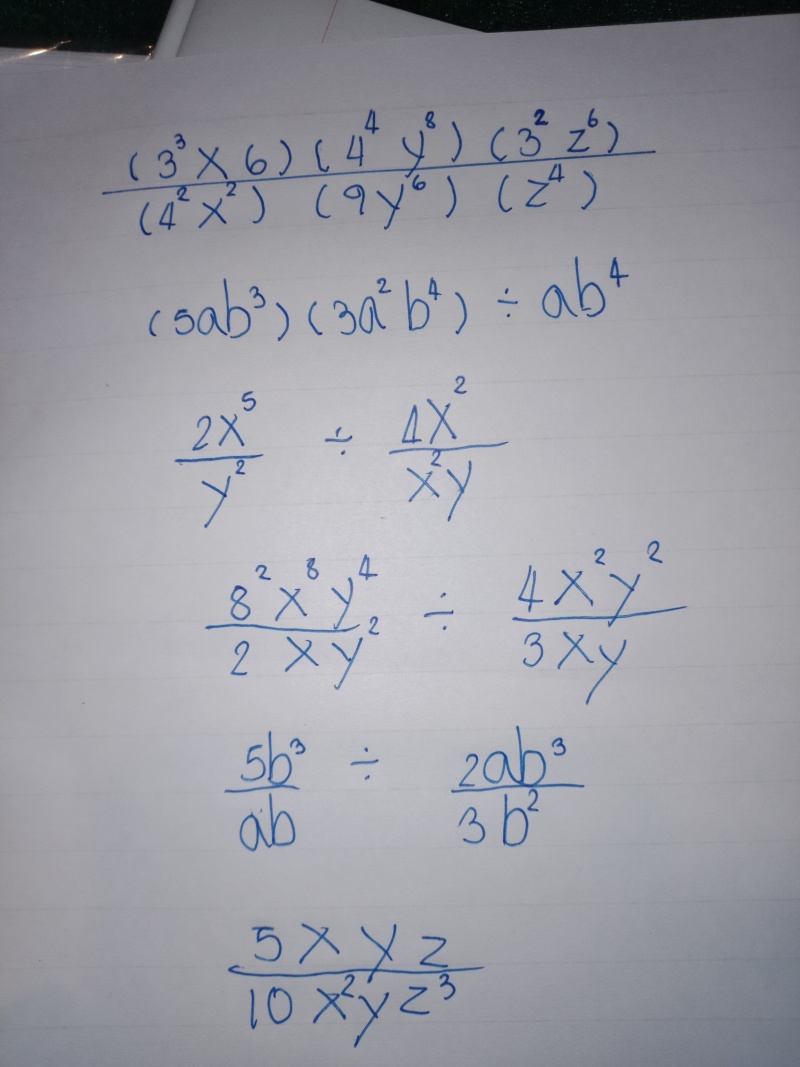 (3³ x 6) (4⁴ y⁸) (3² z⁶)
(4² x²) (9y⁶) (z⁴)
(5ab³) (3a² b⁴) ÷ ab⁴
2x⁵ ÷ 4x²
y² x²y
8² x⁸ y⁴ ÷ 4x² y²
2 xy² 3xy
5b³ ÷ 2ab³
ab 3b²
5 x y z
10 x²yz³